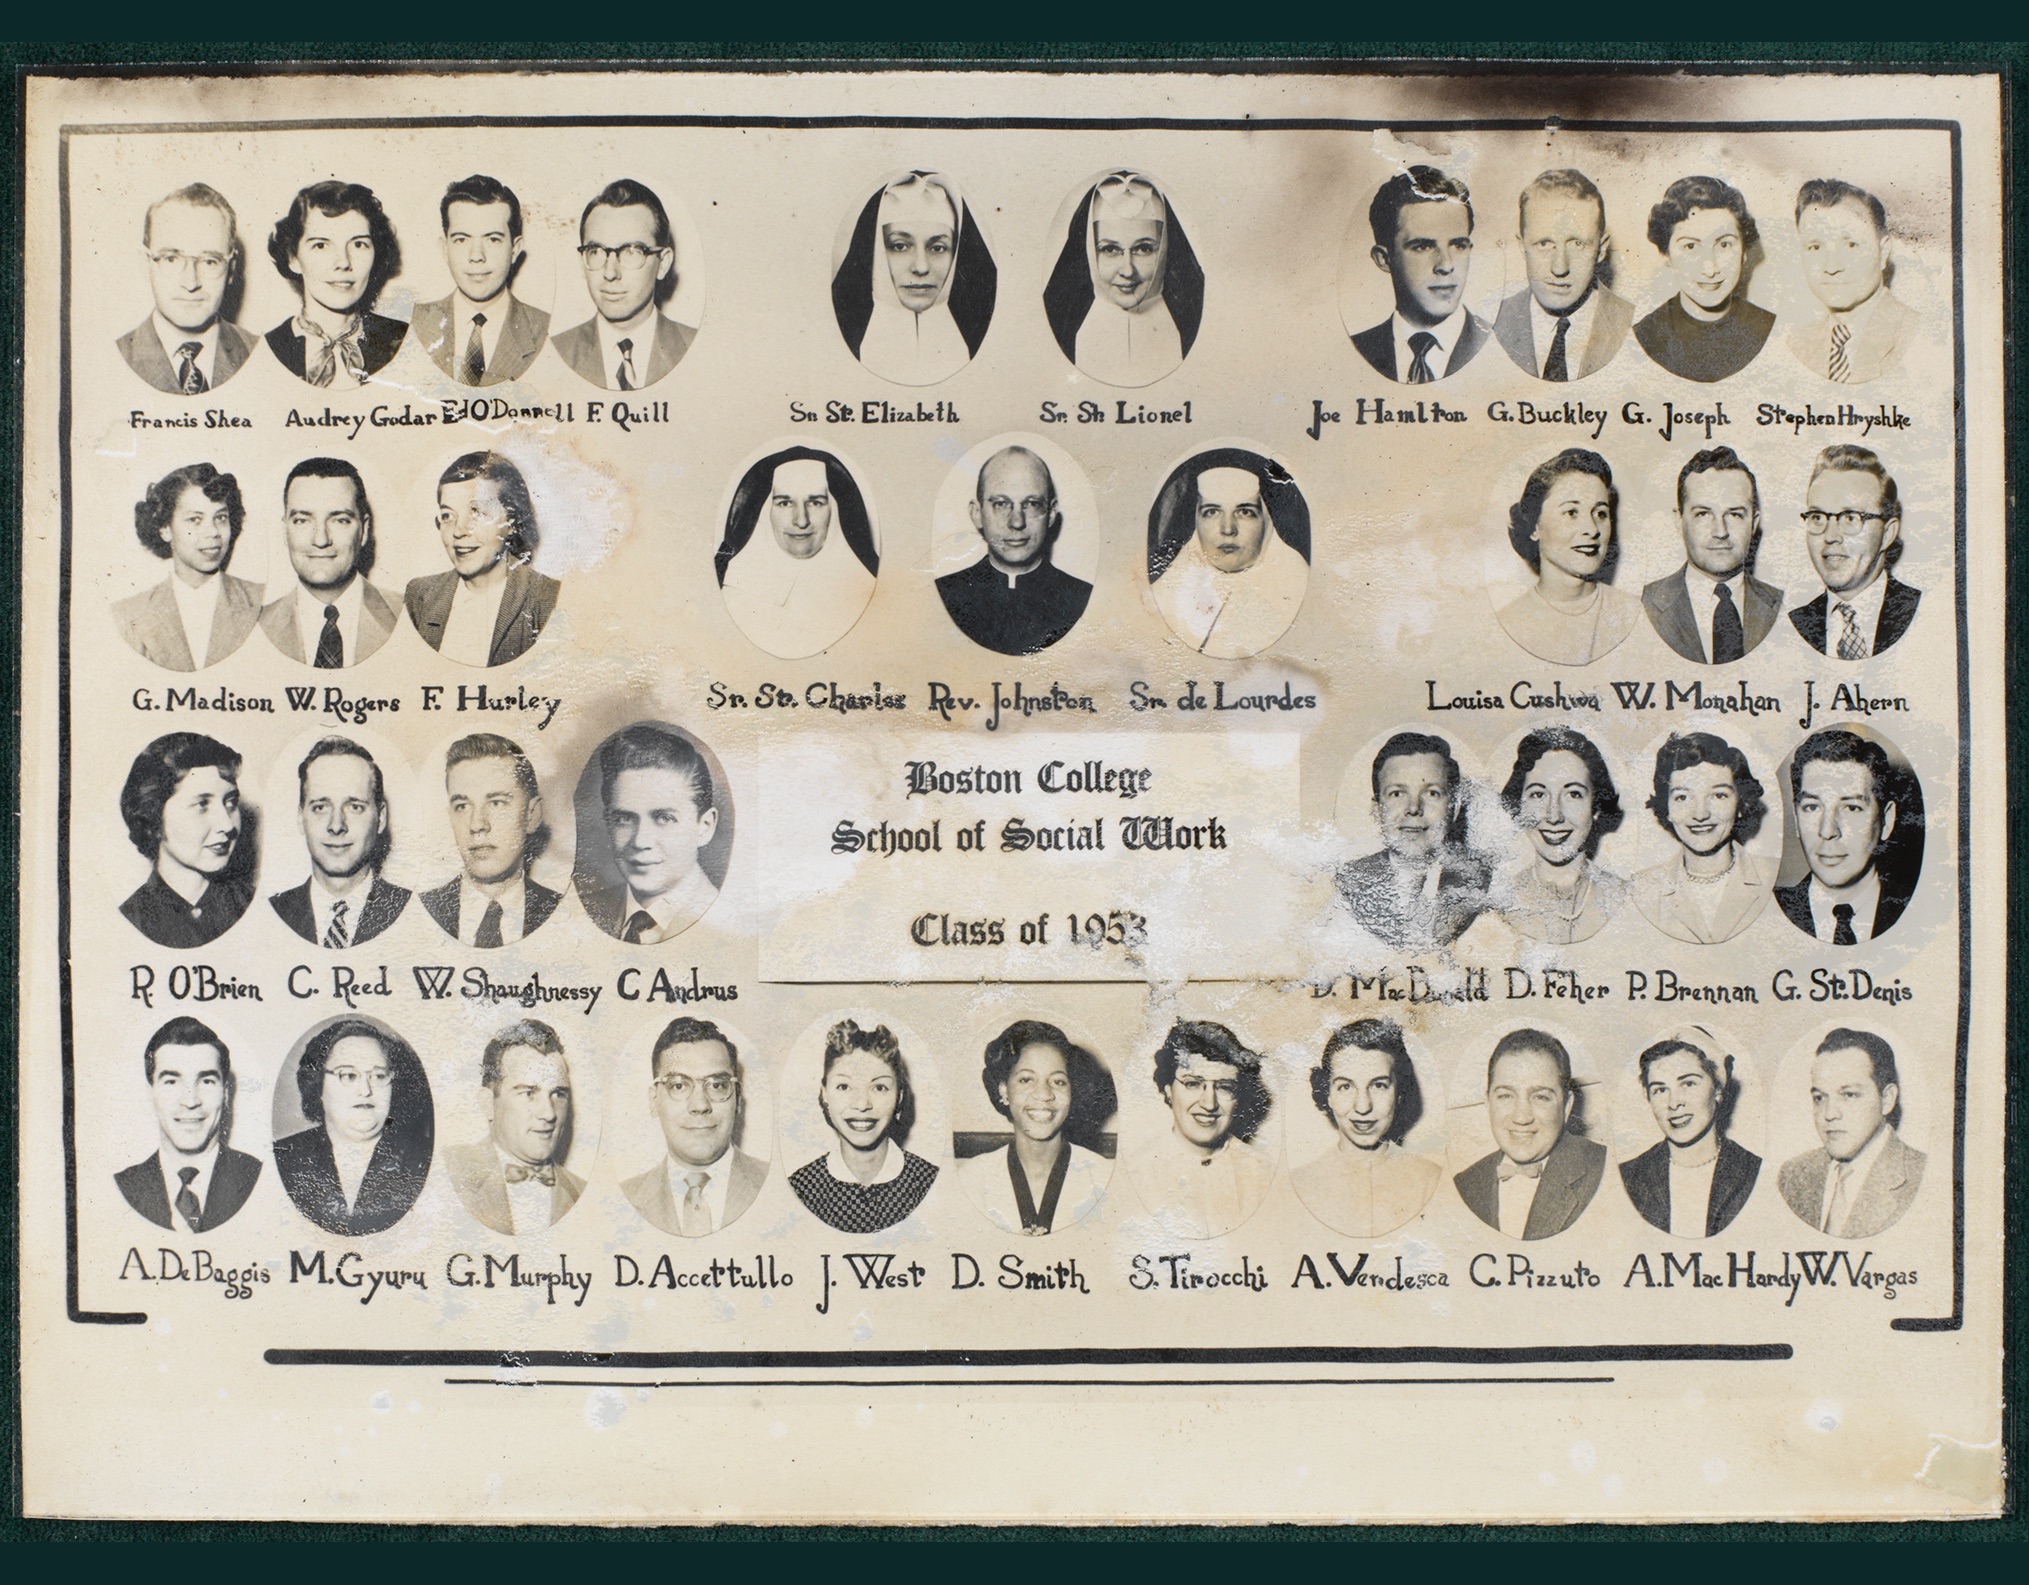 Francis Shea Audrey Godar Ed O'Donnell F. Quill Sr. St. Elizabeth Sr. St. Lionel Joe Hamilton G. Buckley G. Joseph Stephen Hryshke
G. Madison W. Rogers F. Hurley Sr. St. Charles Rev. Johnston Sr. de Lourdes Louisa Cushwa W. Monahan J. Ahern
Boston College
School of Social Work
Class of 1953
R. O'Brien C. Reed W. Shaughnessy C Andrus D. MacDonald D. Feher P. Brennan G. St. Denis
A. DeBaggis M. Gyuru G. Murphy D. Accettullo J. West D. Smith S. Tirocchi A. Vendesca C. Pizzuto A. MacHardy W. Vargas